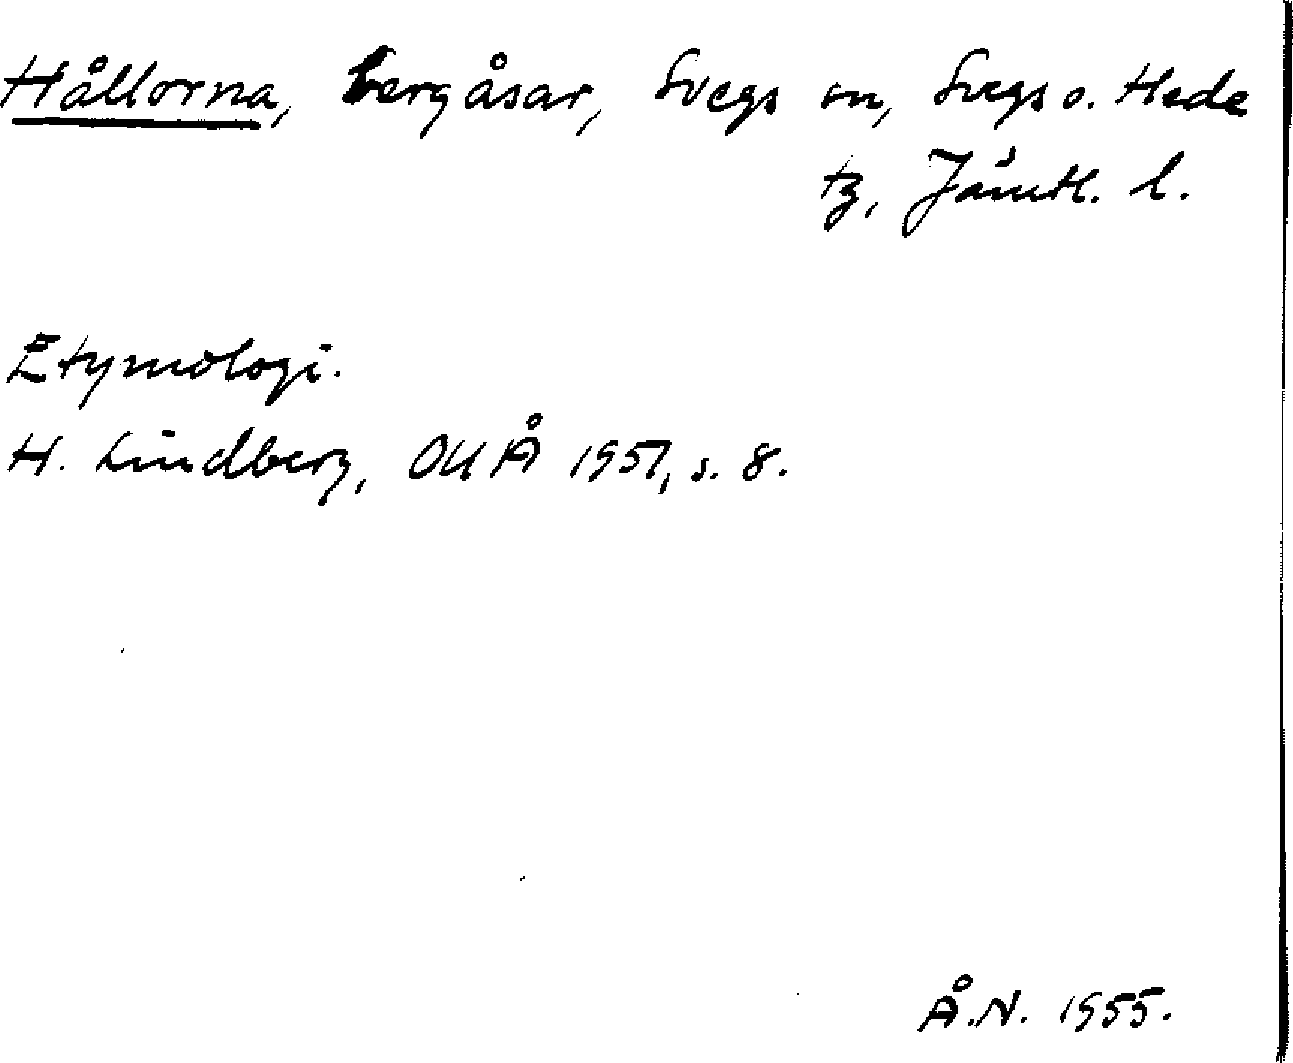 Hållorna, bergåsar, Svegs sn, Svegs o. Hede
tg, Jämtl. l.
Etymologi.
H. Lindberg, OUÅ 1951, s. 8.
Å.N. 1955.